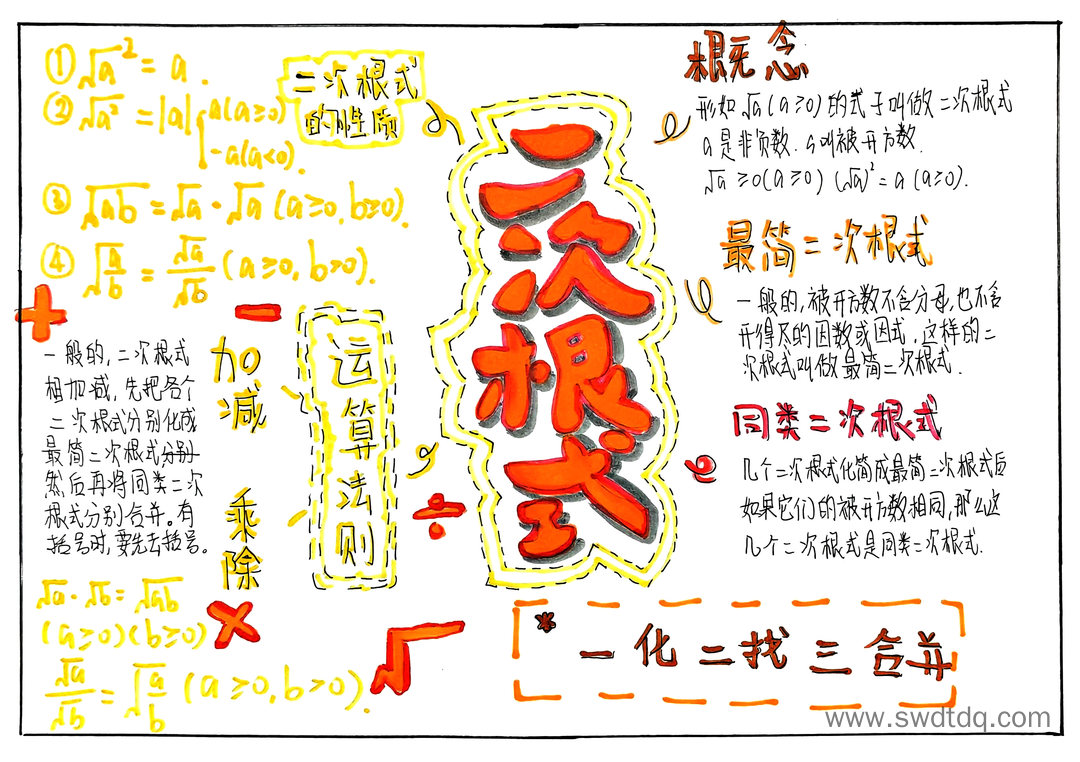 二次根式
二次根式
的性质
① √a² = a.
② √a² = |a| { a(a≥0)
-a(a<0).
③ √ab = √a · √a (a≥0, b≥0).
④ √(a/b) = √a/√b (a≥0, b>0).
运算法则
+
-
加减
一般的,二次根式
相加减,先把各个
二次根式分别化成
最简二次根式分别
然后再将同类二次
根式分别合并。有
括号时,要先去括号。
÷
乘除
×
√a · √b = √ab
(a≥0)(b≥0)
√a/√b = √(a/b) (a≥0, b>0).
√
概念
形如√a(a≥0)的式子叫做二次根式
a是非负数.a叫被开方数.
√a ≥0(a≥0) (√a)² = a (a≥0).
最简二次根式
一般的,被开方数不含分母,也不含
开得尽的因数或因式,这样的二
次根式叫做最简二次根式.
同类二次根式
几个二次根式化简成最简二次根式后
如果它们的被开方数相同,那么这
几个二次根式是同类二次根式.
* 一化二找三合并
www.swdtdq.com